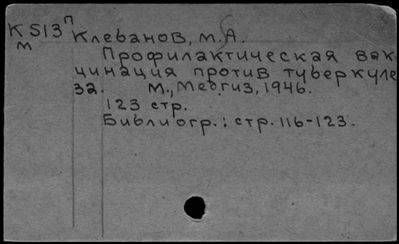 K513п Клеванов, М.А.
м
Профилактическая вак
цинация против туберкуле
за. М., Медгиз, 1946.
123 стр.
Библиогр.: стр. 116-123.